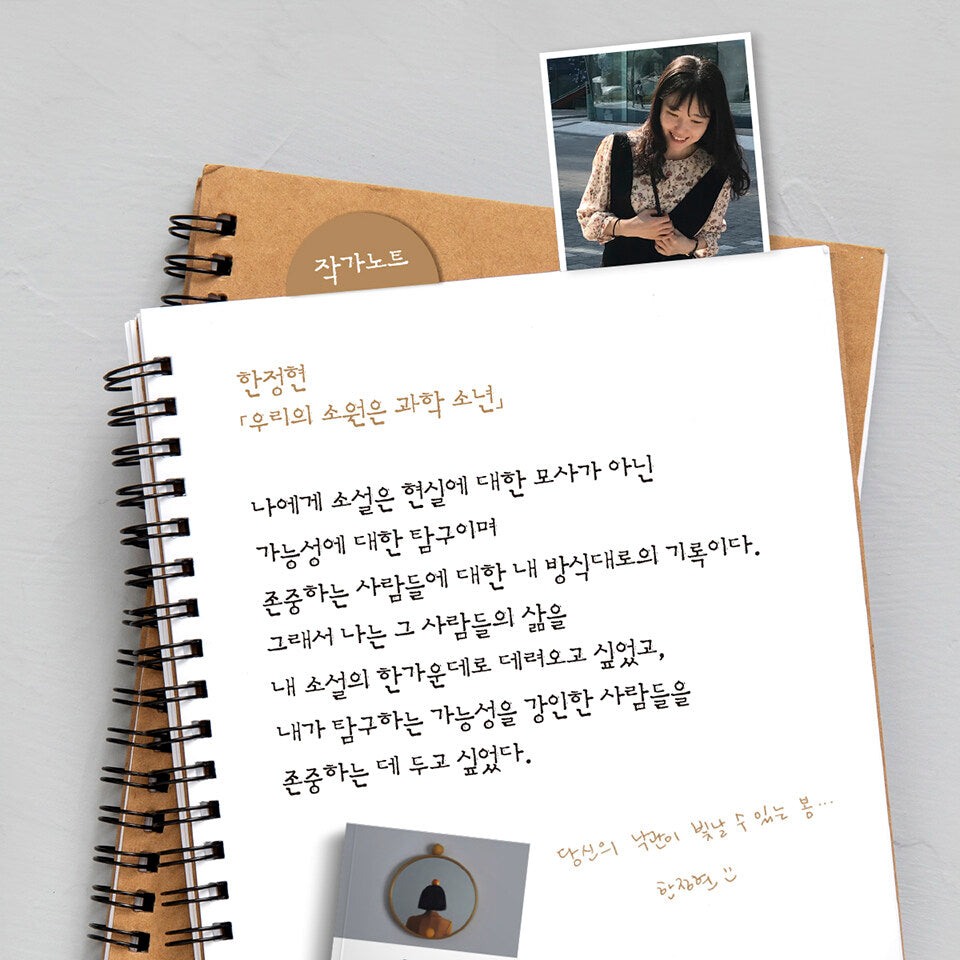 작가노트
한정현
「우리의 소원은 과학 소년」
나에게 소설은 현실에 대한 모사가 아닌
가능성에 대한 탐구이며
존중하는 사람들에 대한 내 방식대로의 기록이다.
그래서 나는 그 사람들의 삶을
내 소설의 한가운데로 데려오고 싶었고,
내가 탐구하는 가능성을 강인한 사람들을
존중하는 데 두고 싶었다.
당신의 낙관이 빛날 수 있는 봄…
한정현